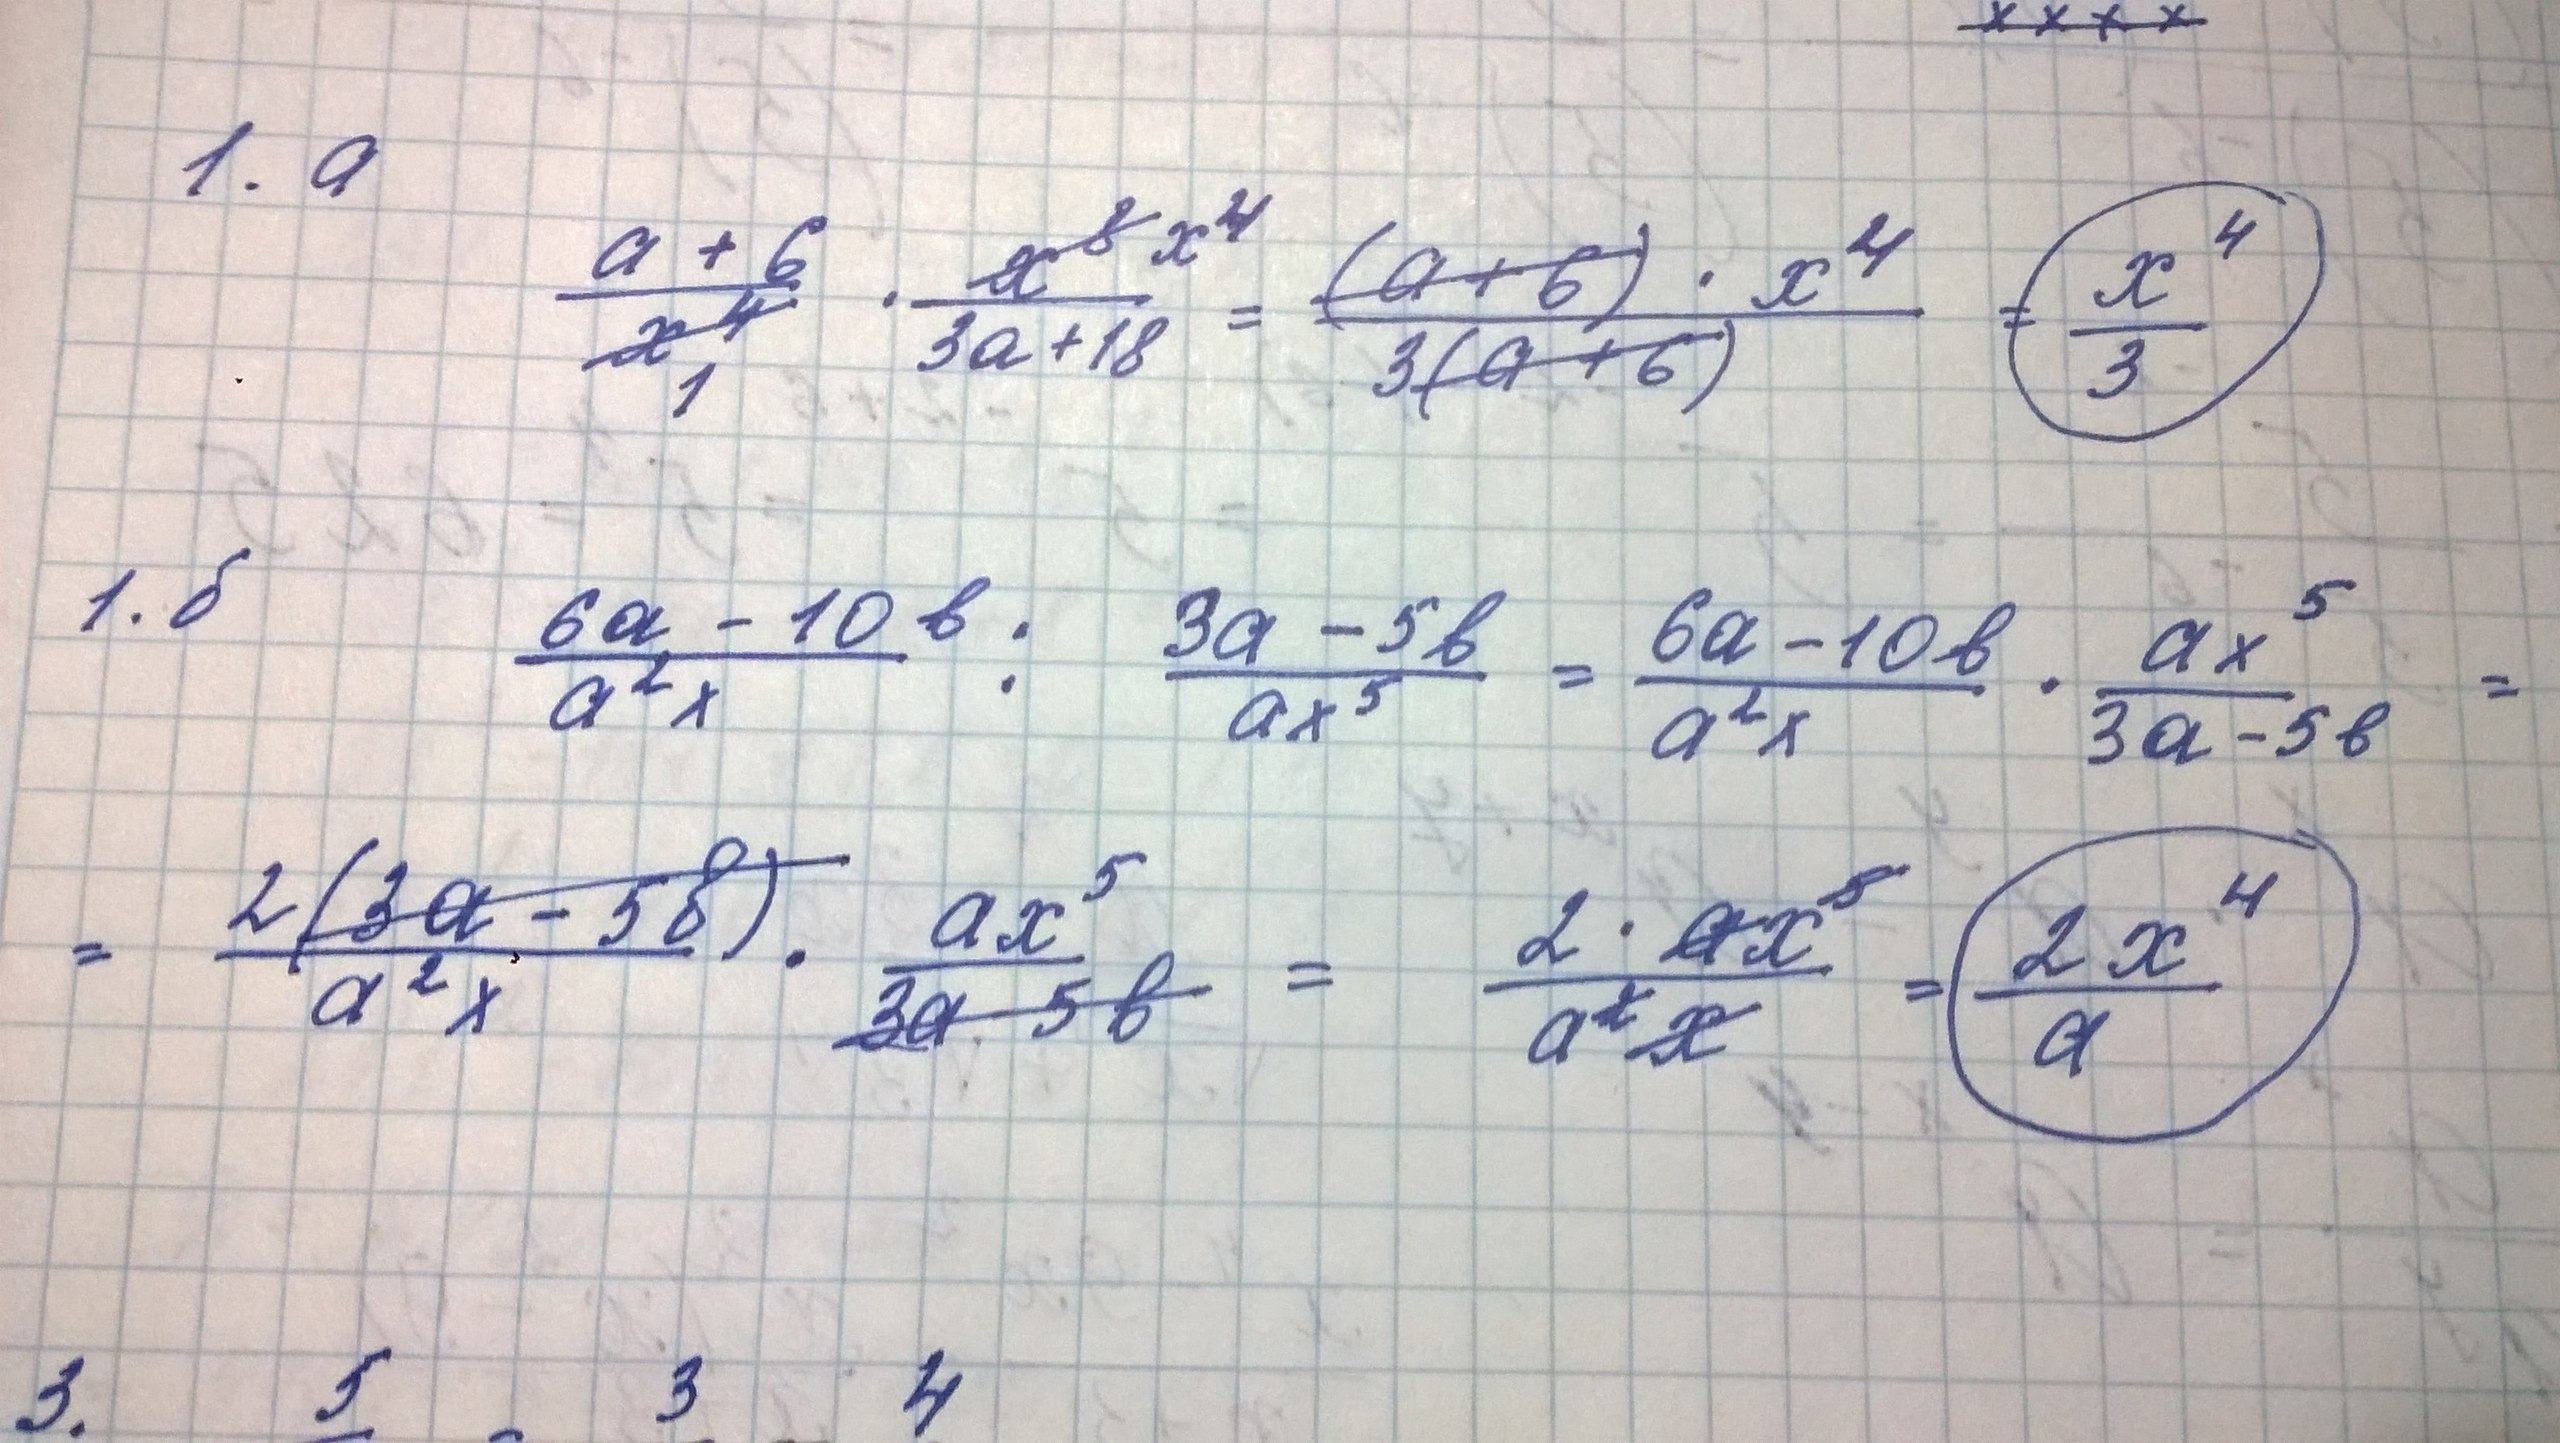 x x x x
1. а
(a + 6)/x⁴ · x⁸/(3a+18) x⁴ = ((a+6) · x⁴)/(3(a+6)) = x⁴/3
1
1. б (6a - 10в)/(a²x) : (3a - 5в)/(ax⁵) = (6a - 10в)/(a²x) · ax⁵/(3a - 5в) =
= 2(3a - 5б)/(a²x) · ax⁵/(3a - 5в) = (2 · ax⁵)/(a²x) = 2x⁴/a
3. 5 3 4